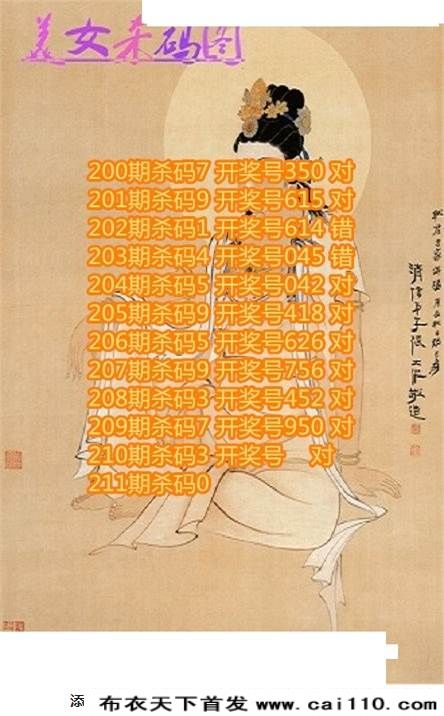 美女杀码图
200期杀码7 开奖号350 对
201期杀码9 开奖号615 对
202期杀码1 开奖号614 错
203期杀码4 开奖号045 错
204期杀码5 开奖号042 对
205期杀码9 开奖号418 对
206期杀码5 开奖号626 对
207期杀码9 开奖号756 对
208期杀码3 开奖号452 对
209期杀码7 开奖号950 对
210期杀码3 开奖号 对
211期杀码0
添
布衣天下首发 www.cai110.com